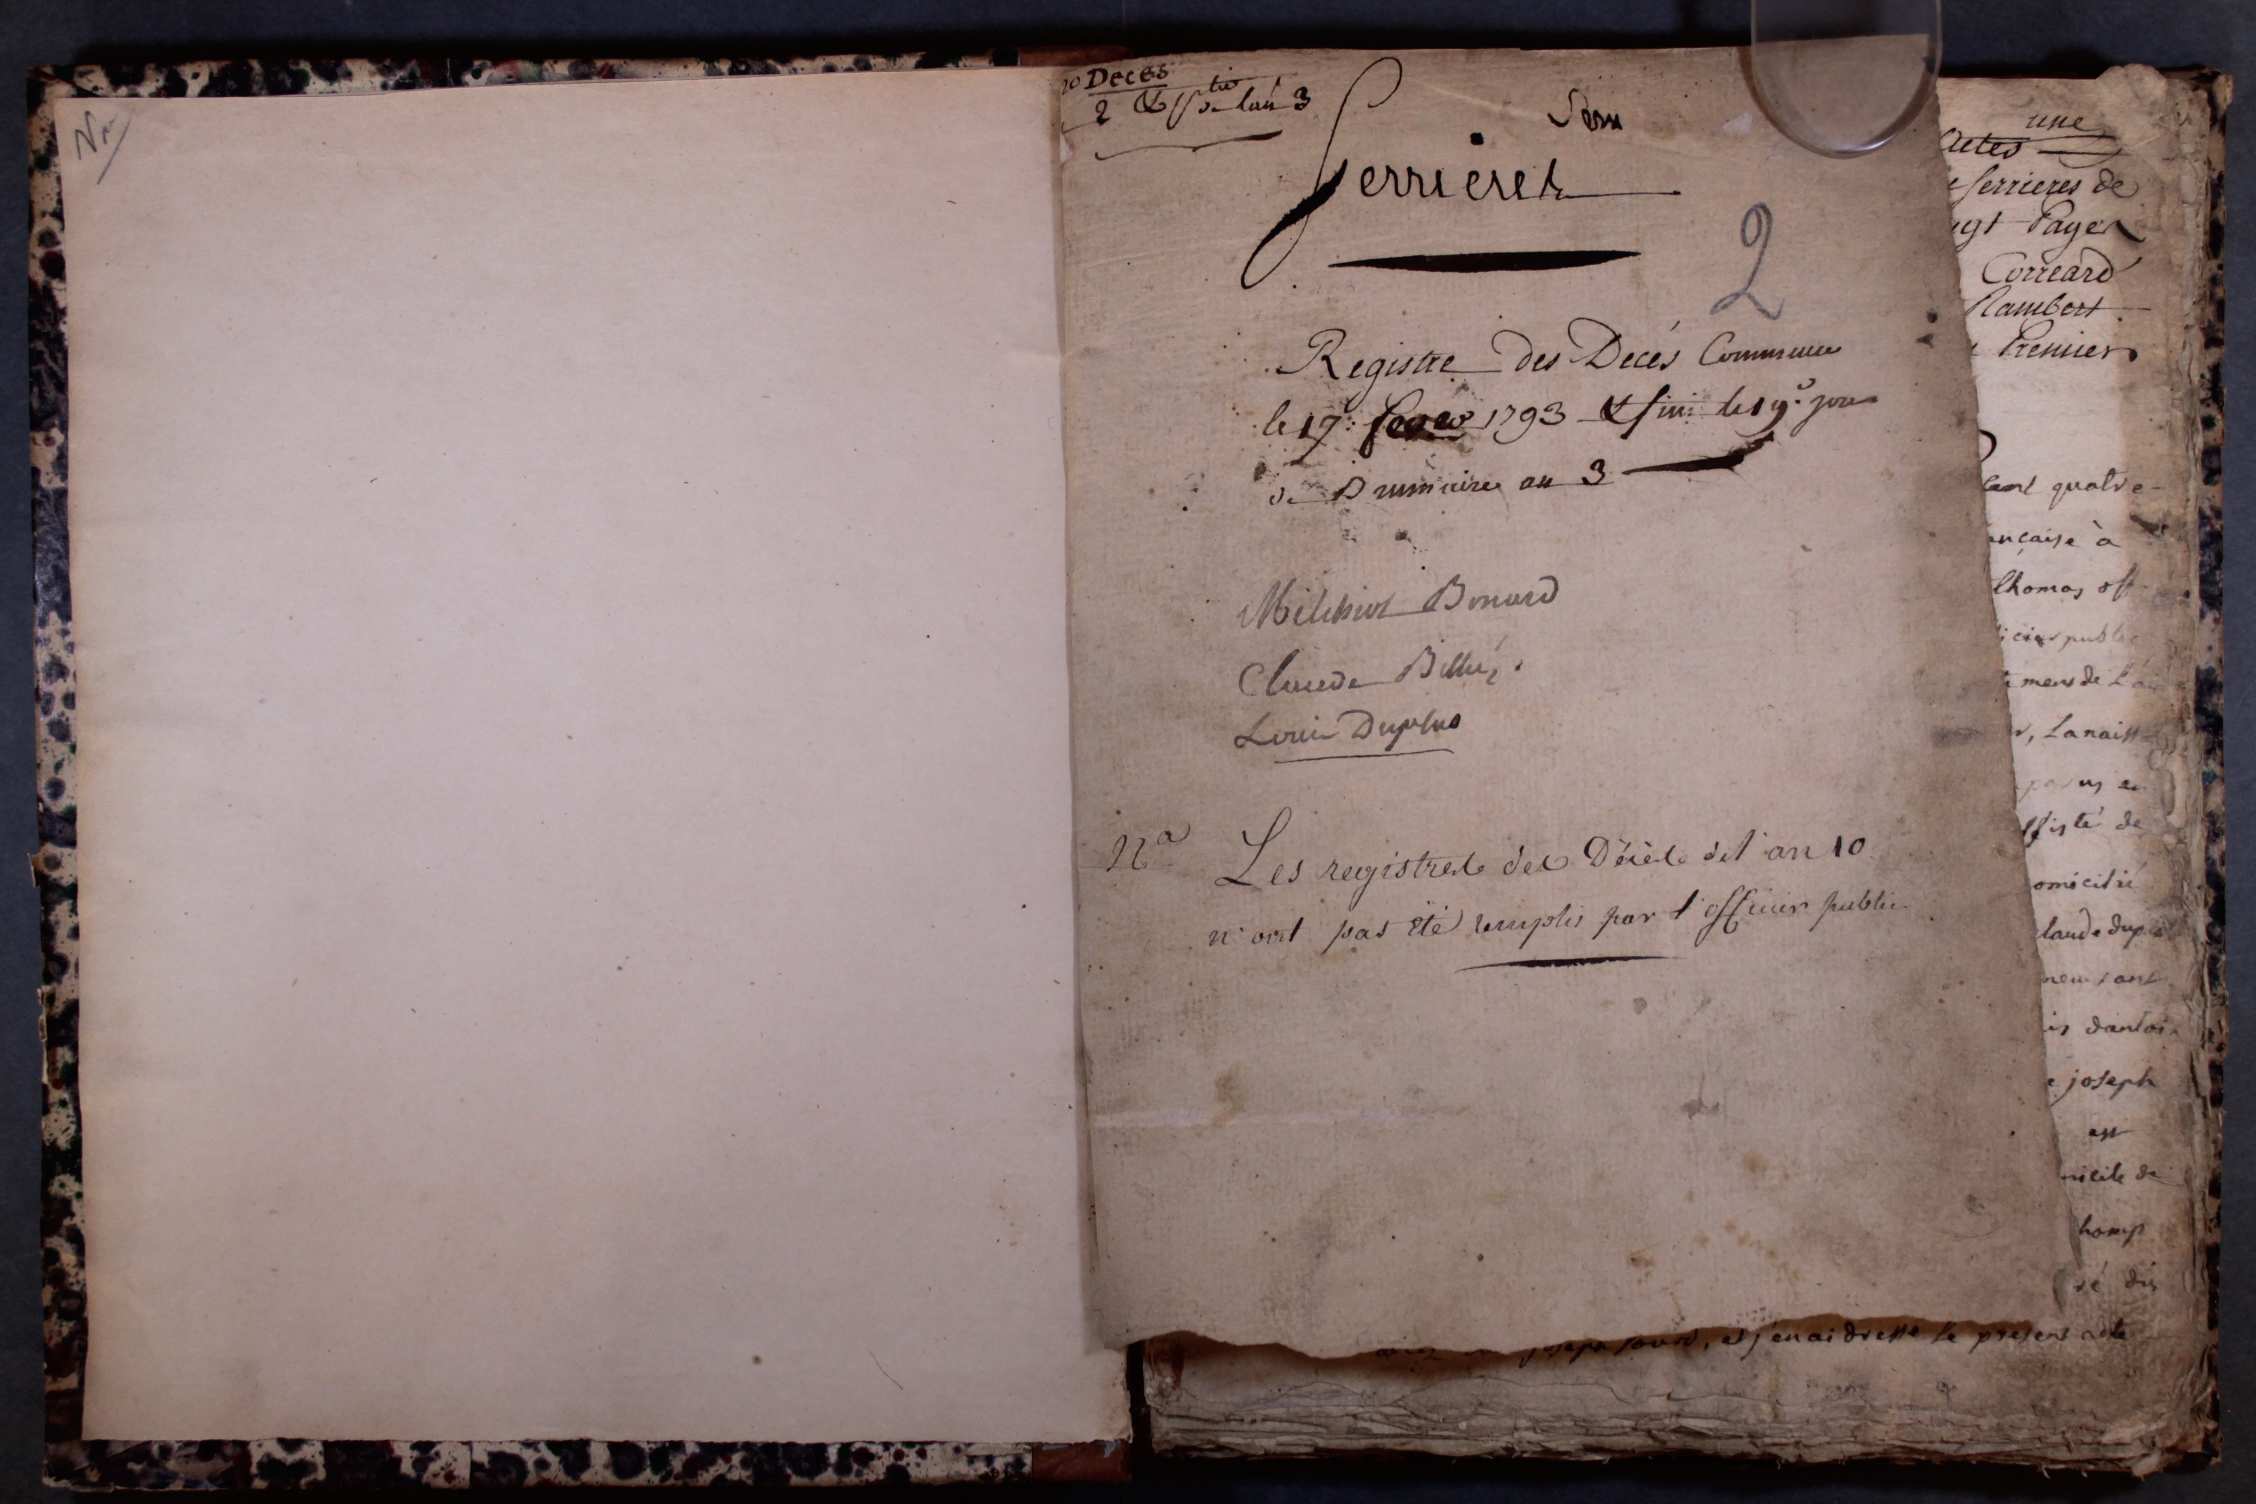 Nre
Deces
2 de lan 3
Serrieres
2
Registre des Decés Commencé
le 17. 1793 & fini le 19e jour
de Brumaire an 3
Melchior Bonard
Claude
Louis Duplus
Na Les registres des Décès de l'an 10
n'ont pas été remplis par l'officier public
une
Actes
Serrieres de
ngt Pages
Correard
Rambert
Premier
cent quatre-
ançaise à
thomas off
icier public
r, La naiss
assisté de
omicilié
laude dup
joseph
est
micile de
joseph, et j'en ai dressé le present acte